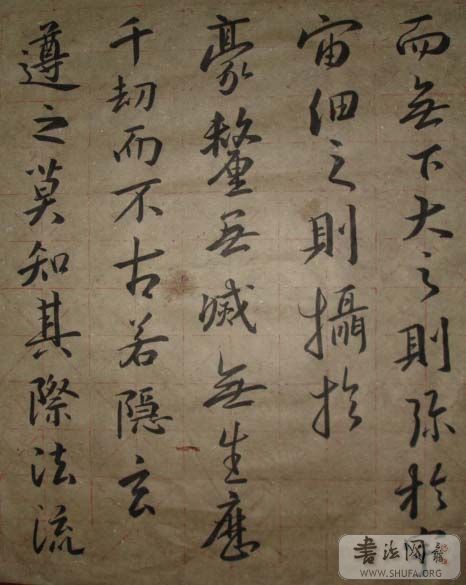 而無下大之則弥於宇
宙細之則攝於
豪釐無滅無生歷
千劫而不古若隱玄
遵之莫知其際法流
書法网
WWW.SHUFA.ORG